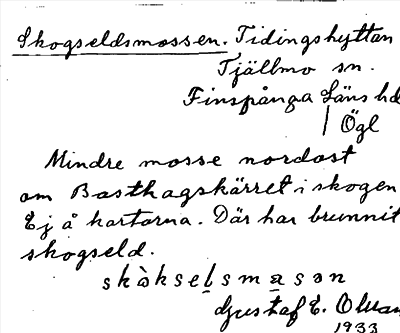 Skogseldsmossen. Tidingshyttan
Tjällmo sn.
Finspånga Läns hd
Ögl
Mindre mosse nordost
om Basthagskärret i skogen
Ej å kartorna. Där har brunnit
skogseld.
skòkselsmasən
Gustaf E. Olsson
1933